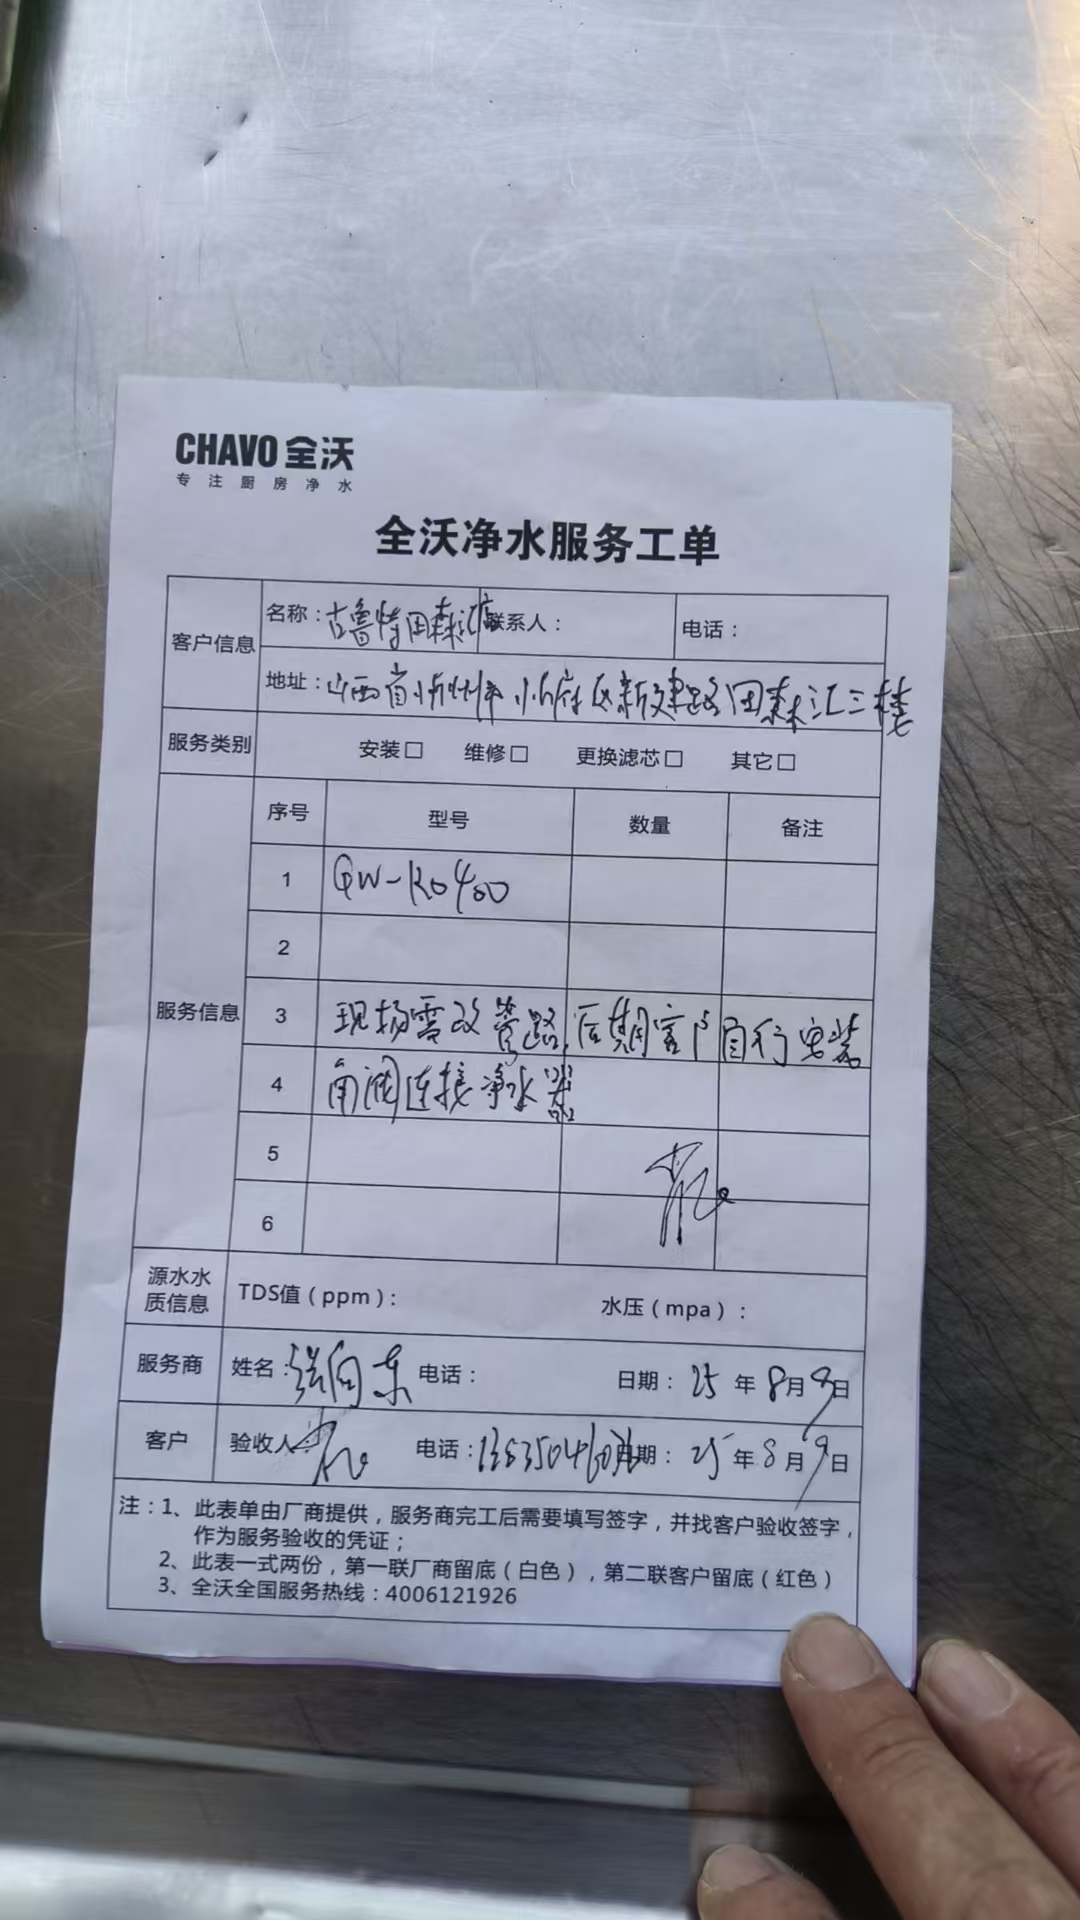 CHAVO 全沃
专注厨房净水
全沃净水服务工单
客户信息 名称：古鲁特田森汇店 联系人： 电话：
地址：山西省忻州市忻府区新建路田森汇三楼
服务类别 安装□ 维修□ 更换滤芯□ 其它□
服务信息 序号 型号 数量 备注
1 QW-RO400
2
3 现场需改管路，后期客户自行安装
4 角阀连接净水器
5
6
源水水质信息 TDS值（ppm）： 水压（mpa）：
服务商 姓名：张向东 电话： 日期：25年8月9日
客户 验收人： 电话： 日期：25年8月9日
注：1、此表单由厂商提供，服务商完工后需要填写签字，并找客户验收签字，
作为服务验收的凭证；
2、此表一式两份，第一联厂商留底（白色），第二联客户留底（红色）
3、全沃全国服务热线：4006121926